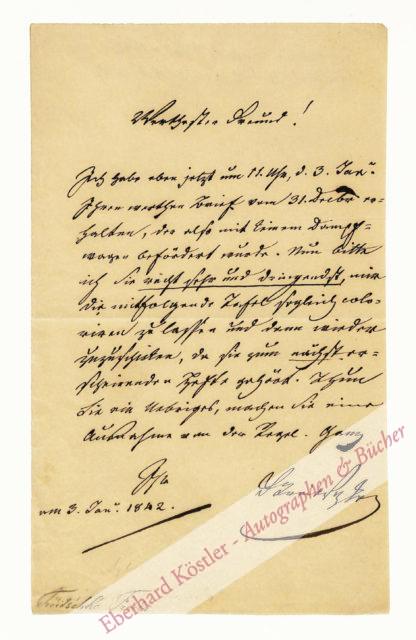 Werthester Freund!
Ich habe eben jetzt um 11. Uhr, d. 3. Janr.
Ihren werthen Brief vom 31. Decbr er-
halten, der also mit keinem Dampf-
wagen befördert wurde. Nun bitte
ich Sie recht sehr und dringendst, mir
die mitfolgende Tafel sogleich colo-
riren zu lassen und dann wieder
zuzuschicken, da sie zum nächst er-
scheinenden Hefte gehört. Thun
Sie ein Uebriges, machen Sie eine
Ausnahme von der Regel. Ganz
Ihr
am 3. Janr. 1842.
Eberhard Köstler - Autographen & Bücher